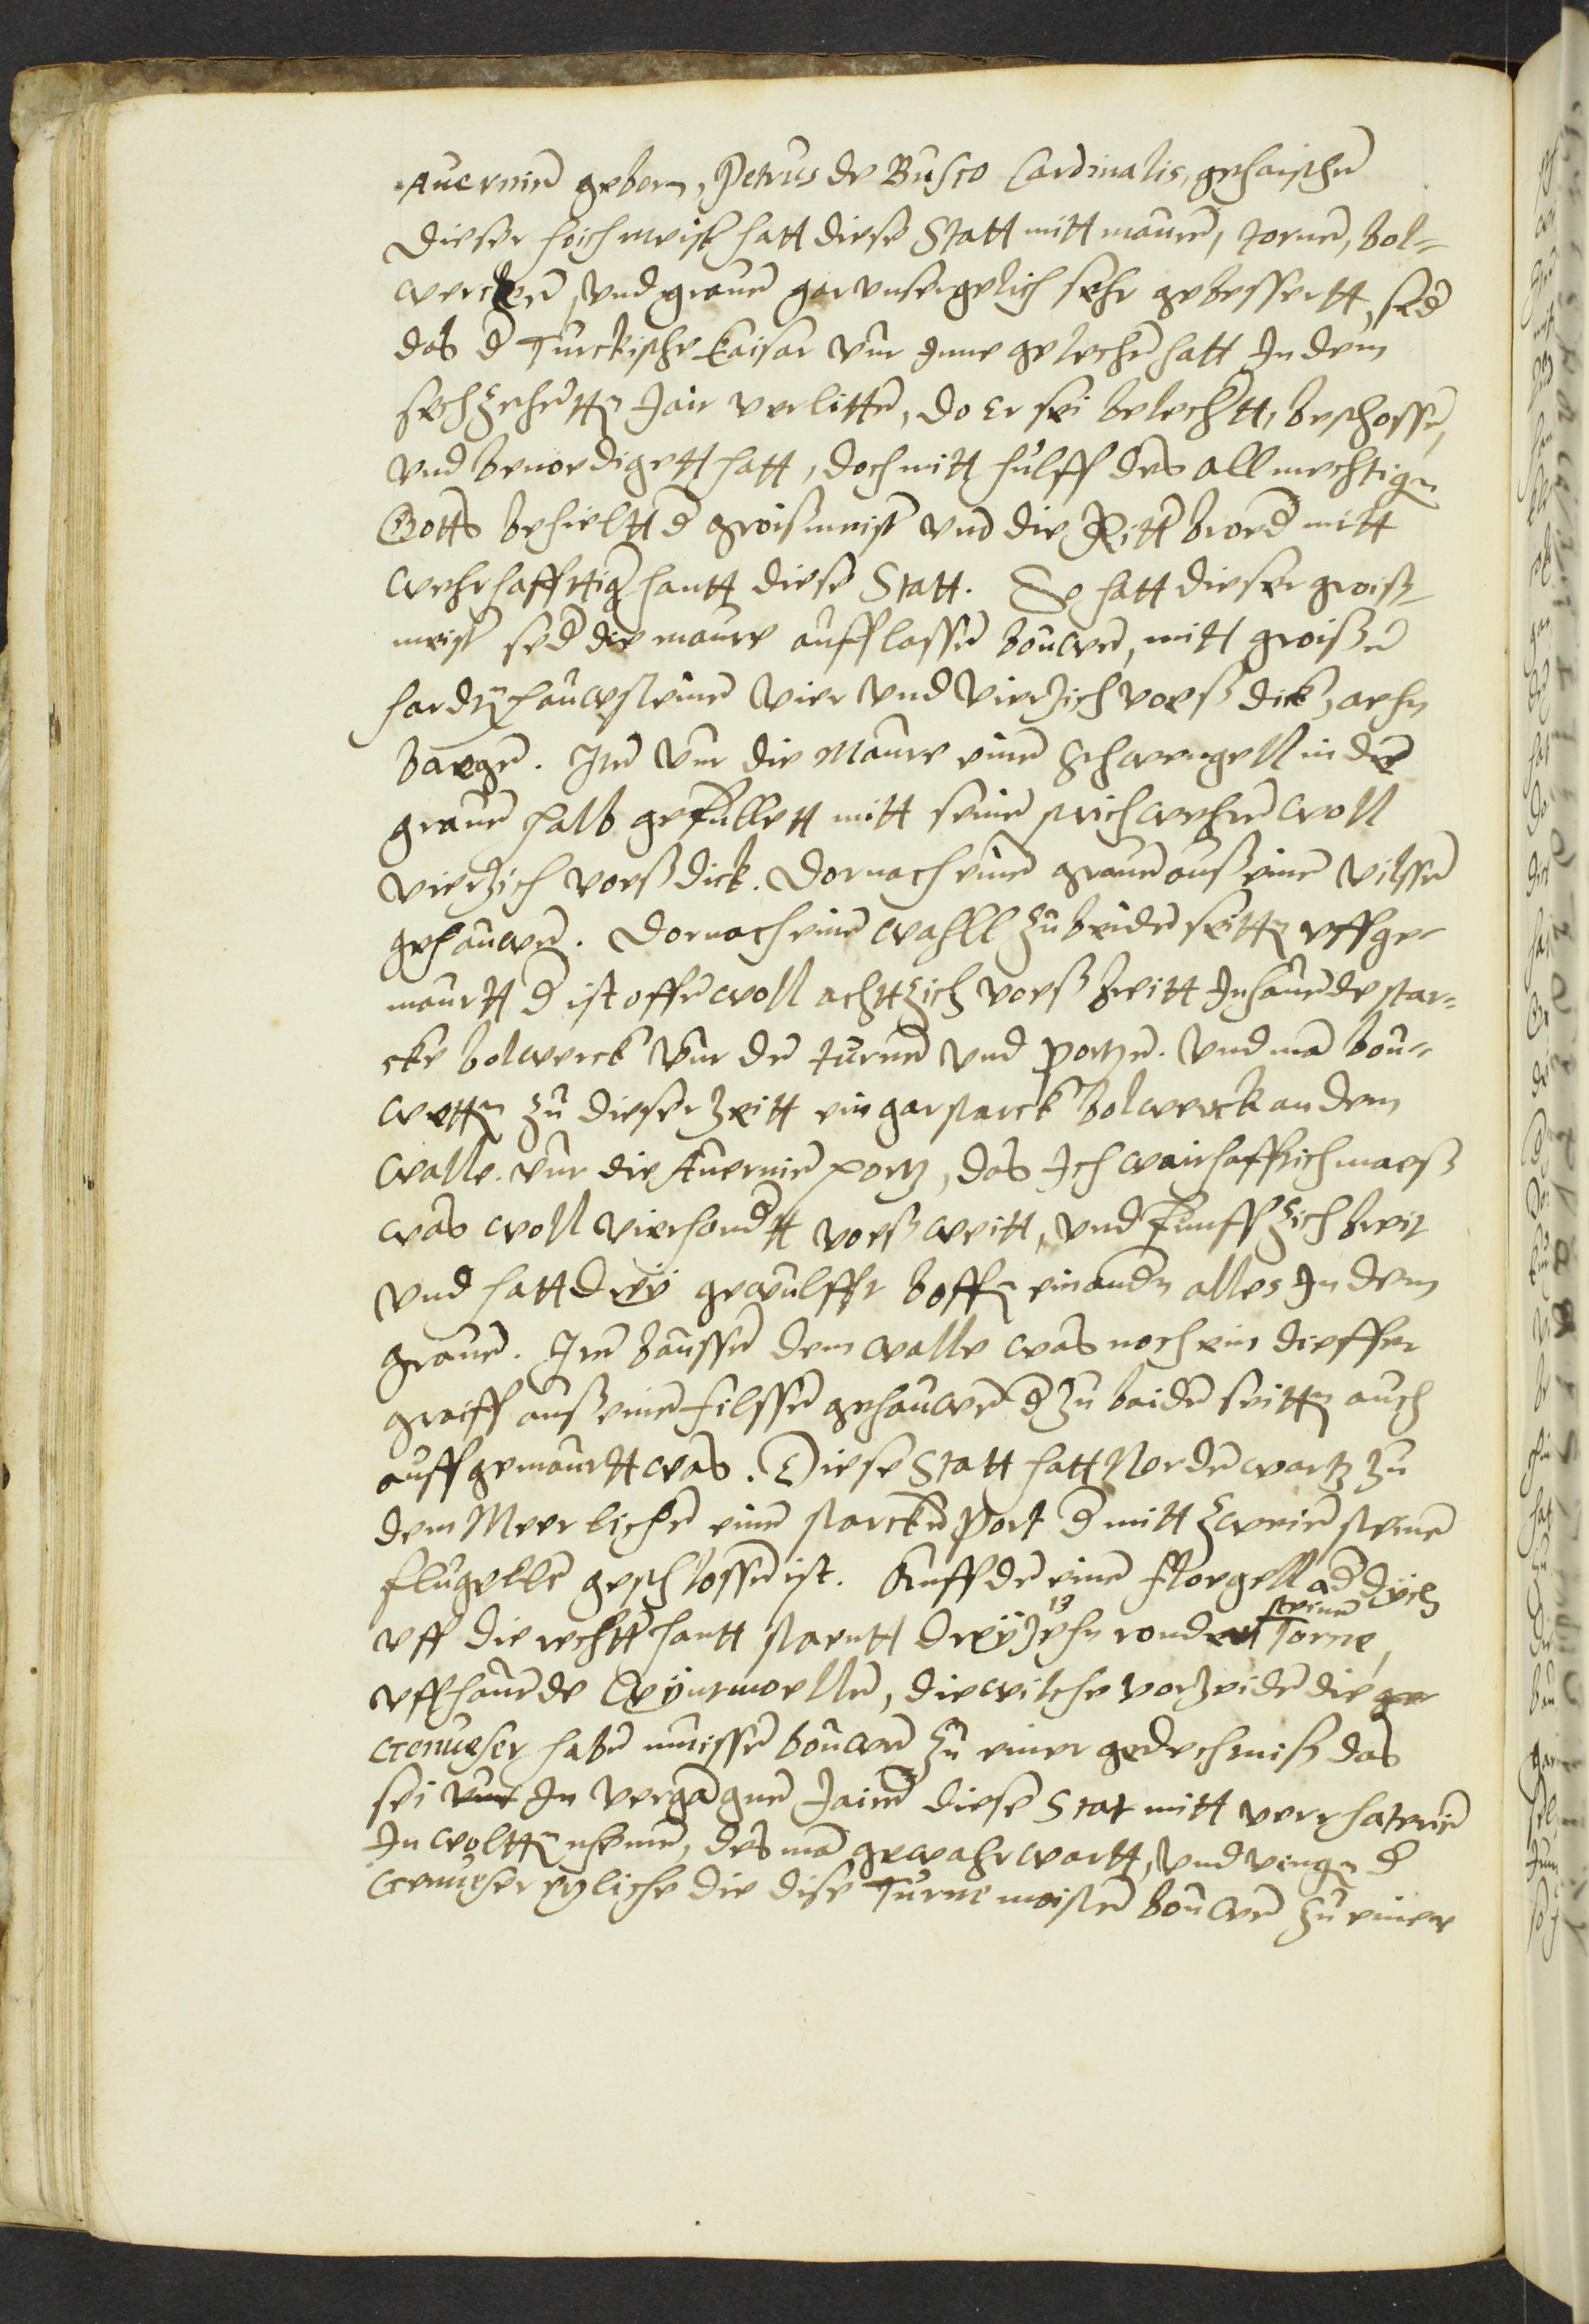 Auernien geborn, Petrus de Busco Cardinalis, gehaischen
Dieser hoichmeist hatt diese Statt mitt mauren, tornen, bol=
wercken, vnd grauen gar vnsegelich sehr gebessertt, sed
das d Turckische Kaisar vur Inne gelechen hatt In dem
sechzehentten Jair verlitten, do Er sei belechtt, beschossen,
vnd benoedigett hatt, doch mitt hulff des allmechtigen
Gotts behieltt d groismeist vnd die Ritt broed mitt
wehrhafftiger hantt diese Statt. So hatt dieser groiß=
meist sed die maure auff lassen bouwen, mitt groissen
harden hauwsteinen vier vnd viertzich voeß dick, aehn
baegen. Item vur die Maure einen Schwengell in den
grauen halb gefullett mitt seinen strichwehren woll
viertzich voeß dick. Dornach einen grauen auß einen vilssen
gehauwen. Dornach einen wahll zu beiden seitten vffge-
maurtt d ist offen woll achtzich voeß breitt In hauende star=
cke bolwerck vur den turnen vnd portzen. Vnd man bou=
wetten zu dieser zeitt ein gar starck bolwerck an dem
walle vur die Auernien portz, das Ich wairhafftich maeß
was woll vierhondtt voeß weitt, vnd funffzich breit
vnd hatt dreÿ gewulffte boffen einanden alles In dem
grauen. Item baussen dem walle was noch ein dieffer
graiff auß einen filssen gehauwen d zu baiden seitten auch
auffgemaurtt was. Diese Statt hatt Norden wartz zu
dem Meer lichen einen starcken Port d mitt zweien steinen
flugellen geschlossen ist. Auff den einen floegell ad dych
vff die rechtt hantt staentt dreÿzehn 13 ronder steinen Torne,
vffhauende Wÿntmoellen, die wilche vorzeiden die ge
Genueser haben muissen bouwen zu einer gedechniß das
sei vur In vergangnen Jairen diese Stat mitt verrhaterien
In woltten nhemen, des man gewahr wartt, vnd vingen d
Genueser etzliche die dise Turne moisten bouwen zu einer